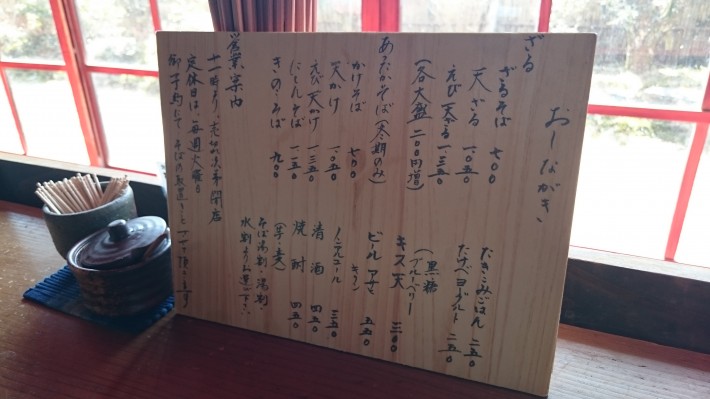 おしながき
ざる
ざるそば 七〇〇
天ざる 一〇五〇
えび天ざる 一三五〇
(各大盛 二〇〇円増)
あったかそば(冬期のみ)
かけそば 七〇〇
天かけ 一〇五〇
えび天かけ 一三五〇
にしんそば 一一五〇
きのこそば 九〇〇
たきこみごはん 二五〇
たけべヨーグルト 二五〇
(黒糖
ブルーベリー)
キス天 三〇〇
ビール アサヒ
キリン 五五〇
ノンアルコール 三五〇
清酒 四五〇
焼酎 四五〇
(芋・麦)
そば湯割・湯割・
水割よりお選び下さい
営業案内
十一時より、売切れ次第閉店
定休日は、毎週火曜日